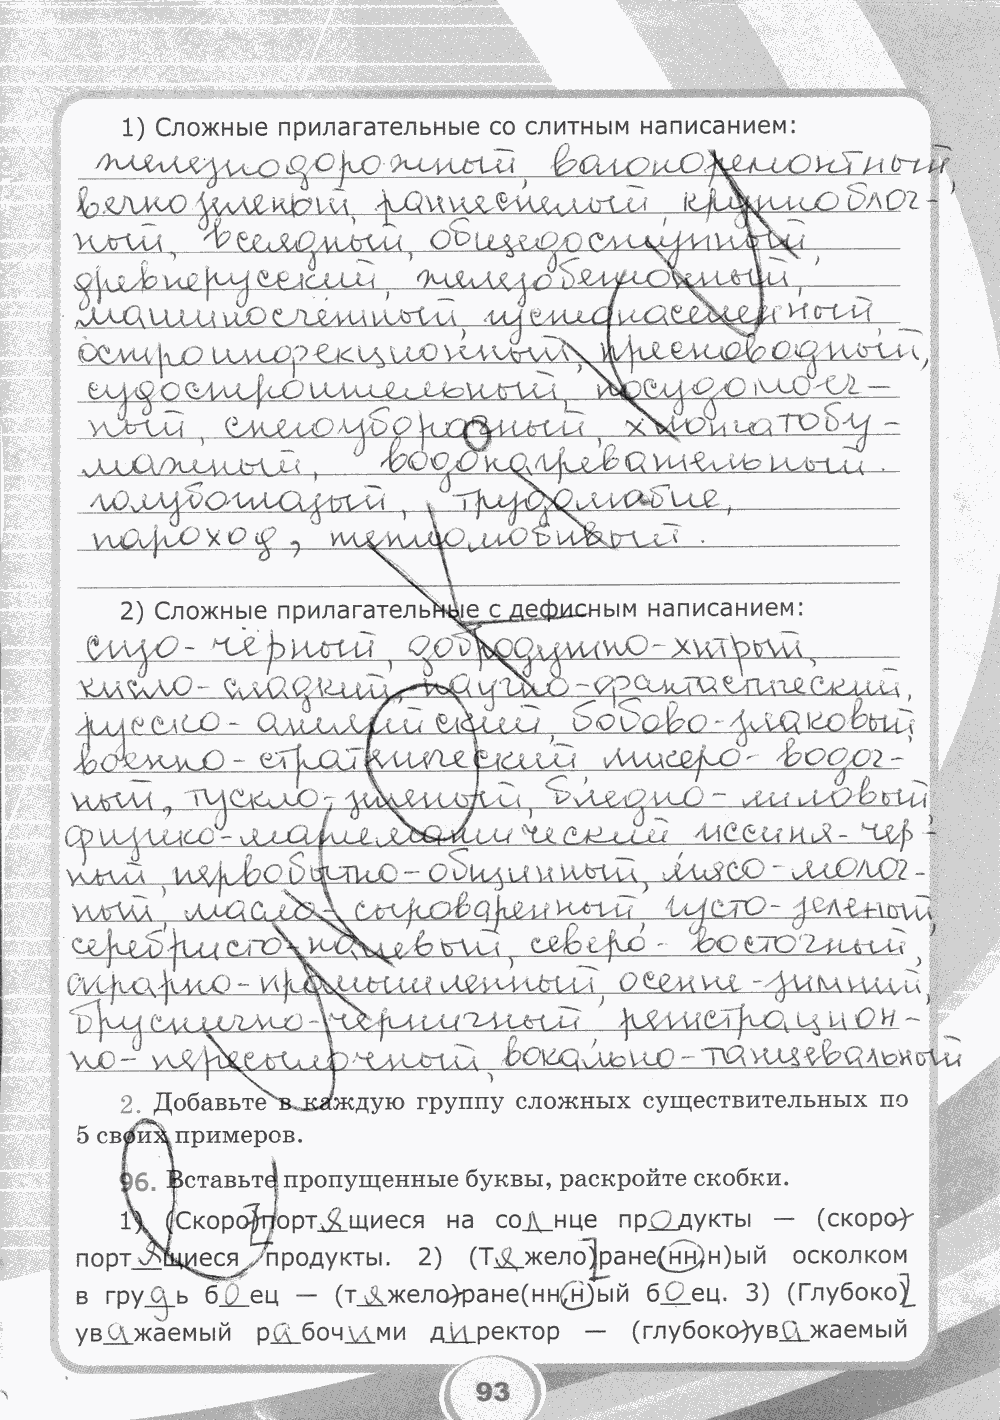 1) Сложные прилагательные со слитным написанием:
железнодорожный, вагоноремонтный,
вечнозеленый, раннеспелый, крупноблоч-
ный, всеядный, общедоступный,
древнерусский, железобетонный,
машиносчётный, густонаселенный,
остроинфекционный, пресноводный,
судостроительный, посудомоеч-
ный, снегоуборочный, хлопчатобу-
мажный, водонагревательный.
голубоглазый, трудолюбие,
пароход, теплолюбивый.
2) Сложные прилагательные с дефисным написанием:
сизо-чёрный, добродушно-хитрый,
кисло-сладкий, научно-фантастический,
русско-английский, бобово-злаковый,
военно-стратегический микро-водоч-
ный, тускло-зленый, бледно-лиловый,
физико-математический иссиня-чер-
ный, первобытно-общинный, мясо-молоч-
ный, масло-сыроваренный, густо-зеленый,
серебристо-палевый, северо-восточный,
аграрно-промышленный, осенне-зимний,
бруснично-черничный регистрацион-
но-пересылочный, вокально-танцевальный
2. Добавьте в каждую группу сложных существительных по
5 своих примеров.
96. Вставьте пропущенные буквы, раскройте скобки.
1) (Скоро)портящиеся на солнце продукты — (скоро)
портящиеся продукты. 2) (Тяжело)ране(нн,н)ый осколком
в грудь боец — (тяжело)ране(нн,н)ый боец. 3) (Глубоко)
уважаемый рабочими директор — (глубоко)уважаемый
93
УРОКИ